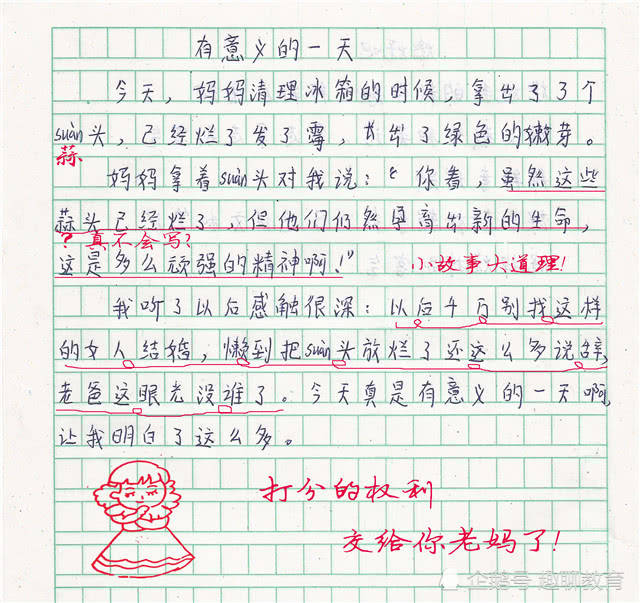 有意义的一天
今天，妈妈清理冰箱的时候，拿出了3个
suàn头，已经烂了发了霉，长出了绿色的嫩芽。
蒜
妈妈拿着suàn头对我说：“你看，虽然这些
蒜头已经烂了，但他们仍然孕育出新的生命，
？真不会写？
这是多么顽强的精神啊！”
小故事大道理！
我听了以后感触很深：以后千万别找这样
的女人结婚，懒到把suàn头放烂了还这么多说辞，
老爸这眼光没谁了。今天真是有意义的一天啊，
让我明白了这么多。
打分的权利
交给你老妈了！
企鹅号 趣聊教育